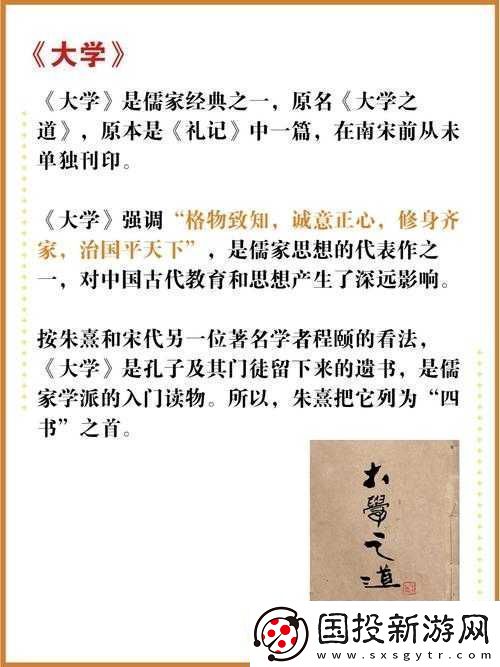 《大学》
《大学》是儒家经典之一，原名《大学之
道》，原本是《礼记》中一篇，在南宋前从未
单独刊印。
《大学》强调“格物致知，诚意正心，修身齐
家，治国平天下”，是儒家思想的代表作之
一，对中国古代教育和思想产生了深远影响。
按朱熹和宋代另一位著名学者程颐的看法，
《大学》是孔子及其门徒留下来的遗书，是儒
家学派的入门读物。所以，朱熹把它列为“四
书”之首。
大學之道
国投新游网
www.sxsgytr.com